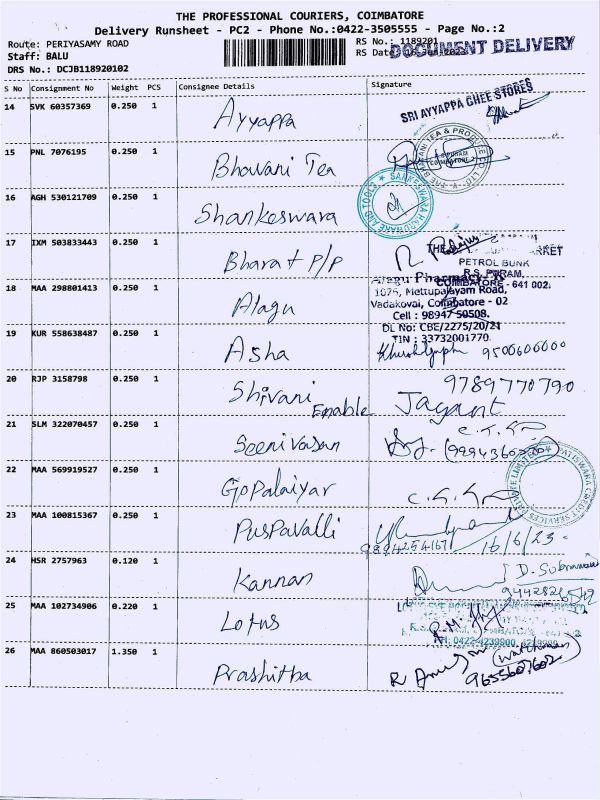 THE PROFESSIONAL COURIERS, COIMBATORE
Delivery Runsheet - PC2 - Phone No.:0422-3505555 - Page No.:2
Route: PERIYASAMY ROAD
Staff: BALU
DRS No.: DCJB118920102
RS No.: 1189201
RS Date: 16-Jun-2023
DOCUMENT DELIVERY
S No Consignment No Weight PCS Consignee Details Signature
14 SVK 60357369 0.250 1 Ayyappa
SRI AYYAPPA GHEE STORES
15 PNL 7076195 0.250 1 Bhavani Tea
16 AGH 530121709 0.250 1 Shankeswara
SANKESWARA HARDWARE AND TOOLS
17 IXM 503833443 0.250 1 Bharat P/P
PETROL BUNK
R.S. PURAM,
COIMBATORE - 641 002.
18 MAA 298801413 0.250 1 Alagu
Alagu Pharmacy
1075, Mettupalayam Road,
Vadakovai, Coimbatore - 02
Cell : 98947 50508.
DL No: CBE/2275/20/21
TIN : 33732001770
19 KUR 558638487 0.250 1 Asha
9500600000
20 RJP 3158798 0.250 1 Shivani Enable
9789770790
Jayant
21 SLM 322070457 0.250 1 Seenivasan
22 MAA 569919527 0.250 1 Gopalaiyar
23 MAA 100815367 0.250 1 Puspavalli
9894254167 16/6/23
24 HSR 2757963 0.120 1 Kannan
D. Subramani
25 MAA 102734906 0.220 1 Lotus
PH: 0422-4239900, 4219900
26 MAA 860503017 1.350 1 Prashitha
(watchman)
9655607602